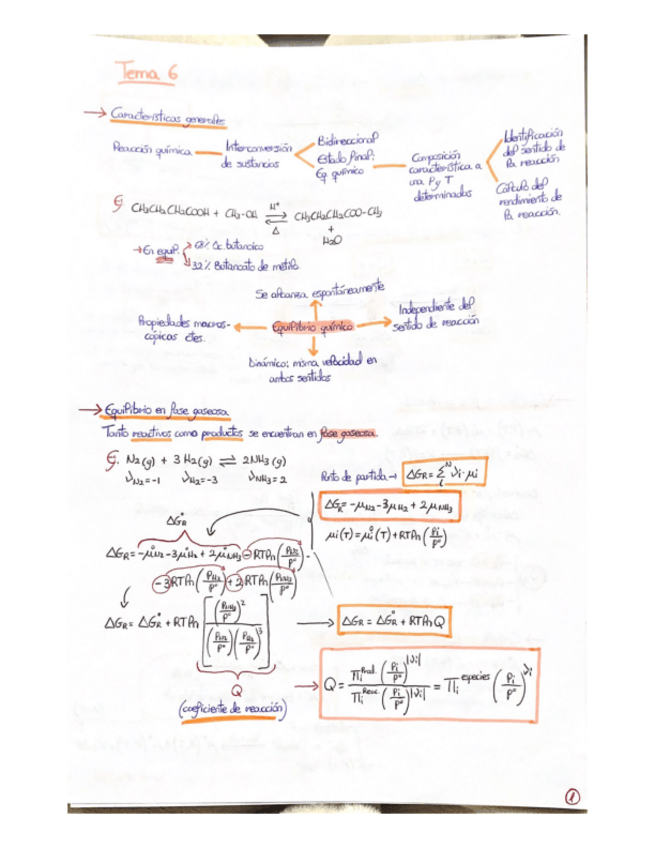 Tema 6
→ Características generales
Reacción química — Interconversión de sustancias
Bidireccional
Estado final: Eq químico
Composición característica a una P y T determinados
Identificación del sentido de la reacción
Cálculo del rendimiento de la reacción.
Ej CH₃CH₂CH₂COOH + CH₃-OH ⇌ (H⁺, Δ) CH₃CH₂CH₂COO-CH₃ + H₂O
→ En equil.
Ác. butanoico
32% Butanoato de metilo
Se alcanza espontáneamente
Propiedades macroscópicas ctes. ← Equilibrio químico → Independiente del sentido de reacción
Dinámico; misma velocidad en ambos sentidos
→ Equilibrio en fase gaseosa
Tanto reactivos como productos se encuentran en fase gaseosa.
Ej. N₂(g) + 3H₂(g) ⇌ 2NH₃(g)
νN₂=-1 νH₂=-3 νNH₃=2
Punto de partida → ΔGR = Σᵢᴺ νi·μi
ΔGR = -μN₂ - 3μH₂ + 2μNH₃
μi(T) = μi°(T) + RTln(Pi/P°)
ΔG°R
ΔGR = -μ°N₂ - 3μ°H₂ + 2μ°NH₃ - RTln(PN₂/P°) -
- 3RTln(PH₂/P°) + 2RTln(PNH₃/P°)
ΔGR = ΔG°R + RTln[(PNH₃/P°)² / (PN₂/P°)(PH₂/P°)³] → ΔGR = ΔG°R + RTlnQ
Q
(coeficiente de reacción)
→ Q = Πi^Prod. (Pi/P°)^|νi| / Πi^Reac. (Pi/P°)^|νi| = Πi^especies (Pi/P°)^νi
1